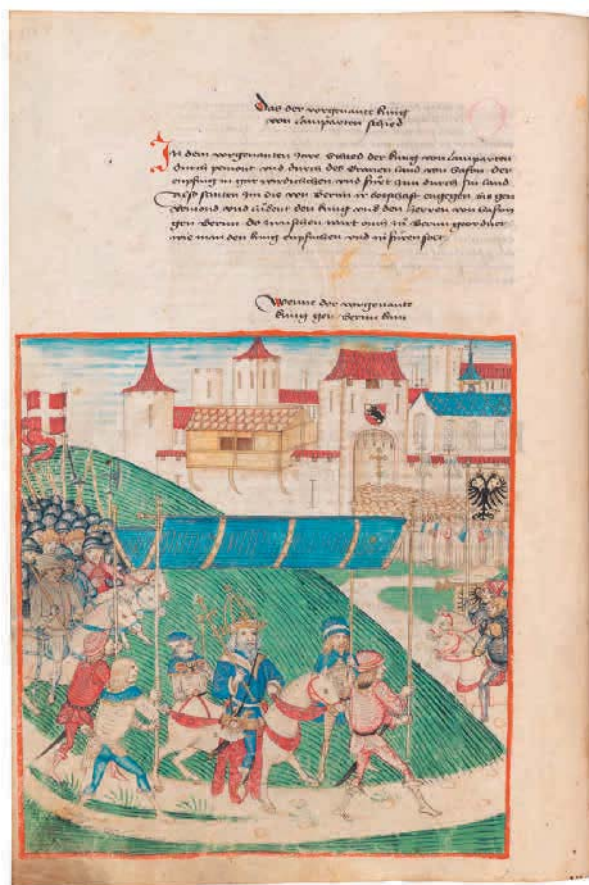 Das der vorgenante kung
von Lamparten schied
In dem vorgenanten Jare schied der kung von Lamparten
durch pemont und durch des Graven land von Safoy der
enpfing in gar wirdenclichen und furt Inn durch sin land
Also santen Im die von Bernn ir botschaft engegen bis gen
Remond und ludent den kung und den herren von Safoy
gen Bernn do zwuschen wart ouch zu Bernn geordnet
wie man den kung enpfachen und in furen solt
Wenne der vorgenante
kung gen Bernn kam